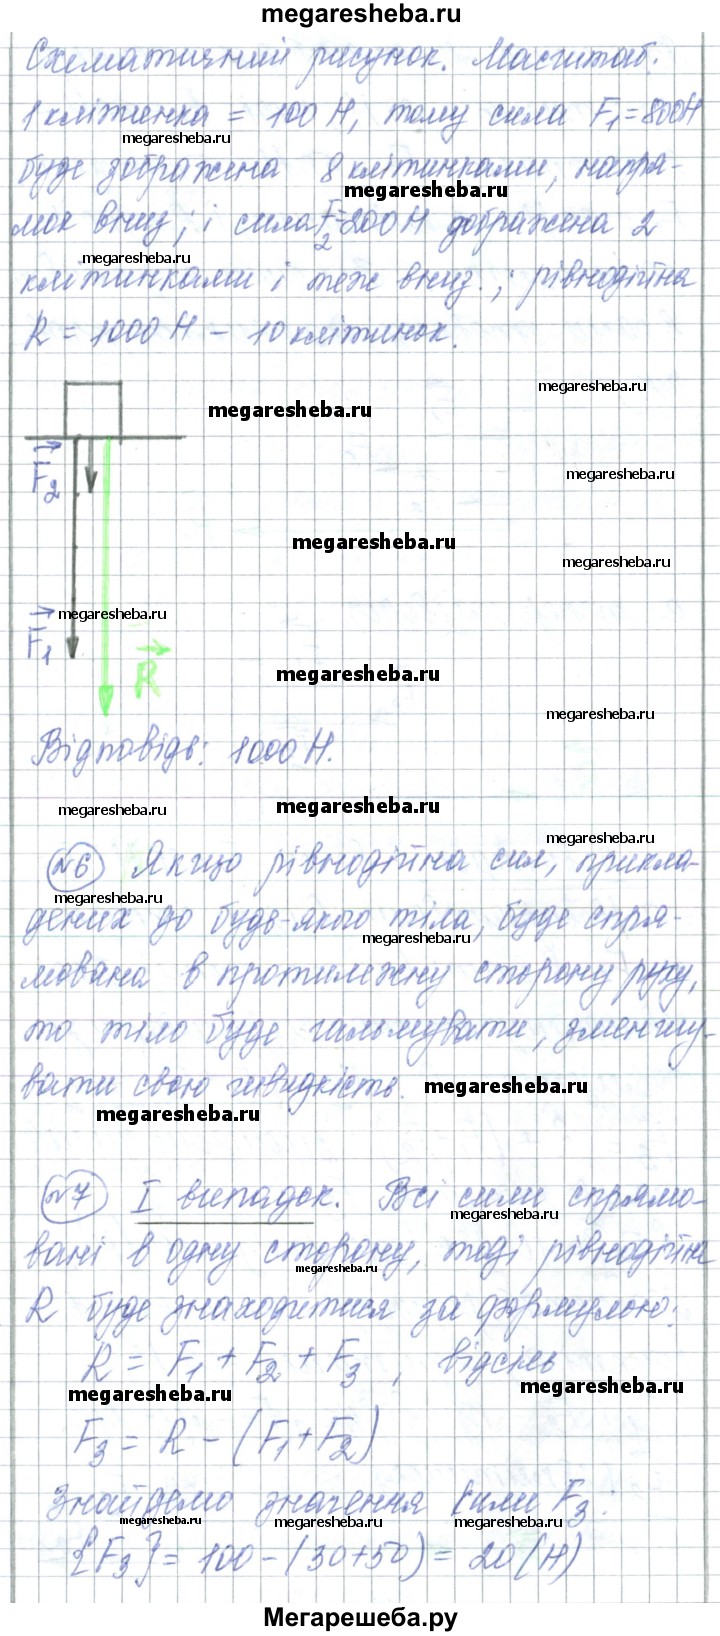 megaresheba.ru
Схематичний рисунок. Масштаб:
1 клітинка = 100 Н, тому сила F₁=800Н
megaresheba.ru
буде зображена 8 клітинками, напря-
megaresheba.ru
мок вниз; і сила F₂=200 Н зображена 2
megaresheba.ru
клітинками і теж вниз.; рівнодійна
R = 1000 Н – 10 клітинок.
megaresheba.ru
megaresheba.ru
F₂
megaresheba.ru
megaresheba.ru
megaresheba.ru
megaresheba.ru
F₁
megaresheba.ru
R
megaresheba.ru
Відповідь: 1000 Н.
megaresheba.ru
megaresheba.ru
megaresheba.ru
№6 Якщо рівнодійна сил, прикла-
megaresheba.ru
дених до будь-якого тіла, буде спря-
megaresheba.ru
мована в протилежну сторону руху,
то тіло буде гальмувати, зменшу-
вати свою швидкість.
megaresheba.ru
megaresheba.ru
№7 I випадок. Всі сили спрямо-
megaresheba.ru
вані в одну сторону, тоді рівнодійна
megaresheba.ru
R буде знаходитися за формулою:
R = F₁ + F₂ + F₃, відсіль
megaresheba.ru
megaresheba.ru
F₃ = R – (F₁ + F₂)
Знайдемо значення сили F₃:
megaresheba.ru
megaresheba.ru
megaresheba.ru
{F₃} = 100 – (30+50) = 20 (Н)
Мегарешеба.ру